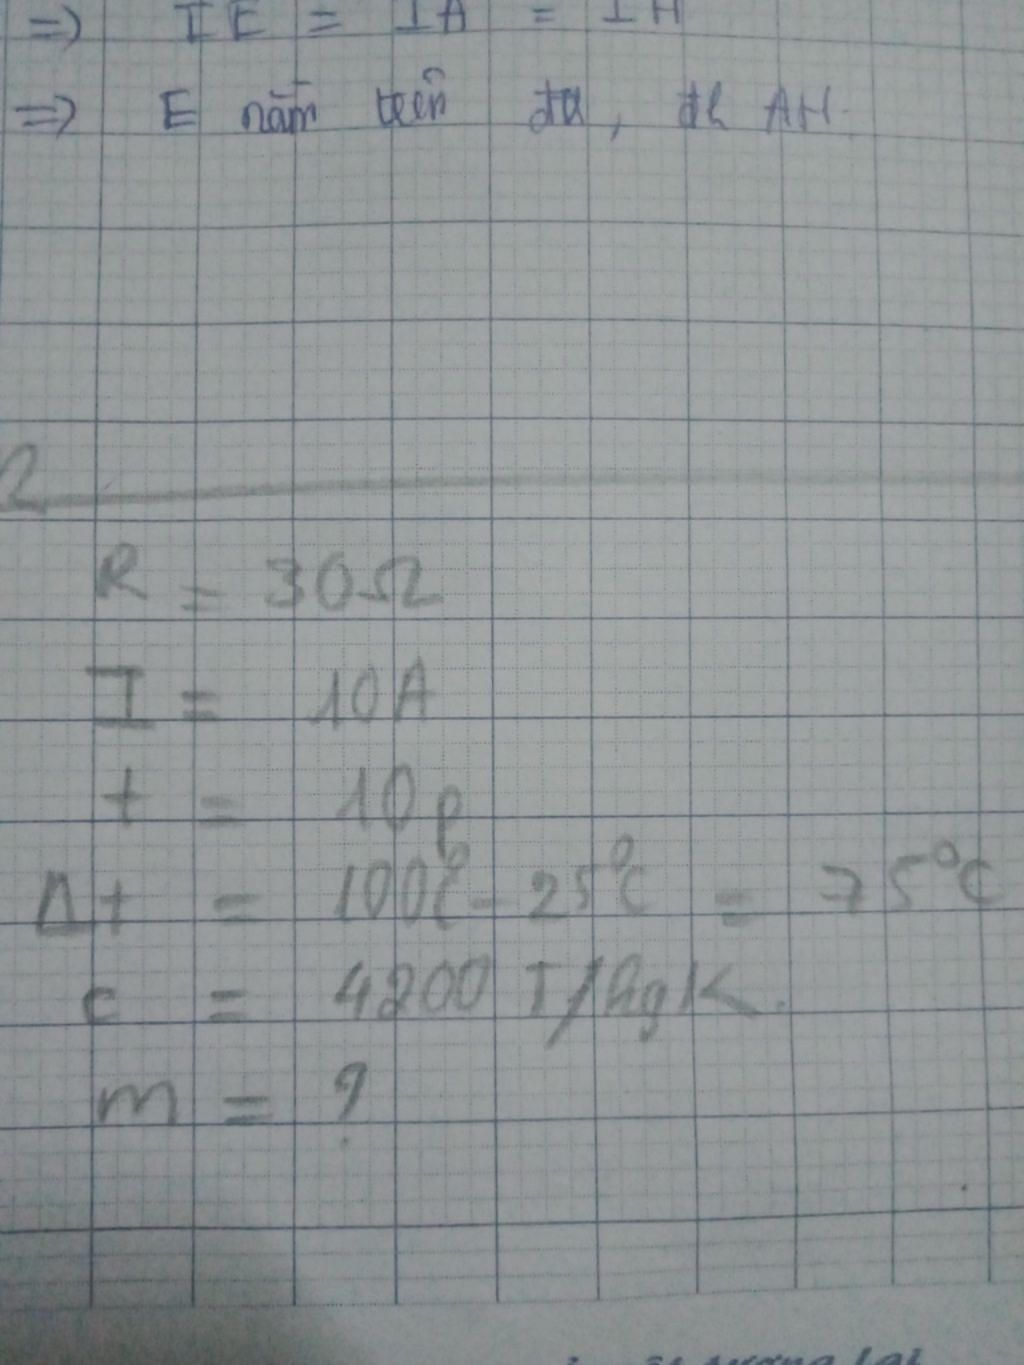 => IE = IA = IH
=> E nằm trên đtr, đk AH.
2
R = 30Ω
I = 10A
t = 10p
Δt = 100°C - 25°C = 75°C
c = 4200 J/kgK.
m = ?